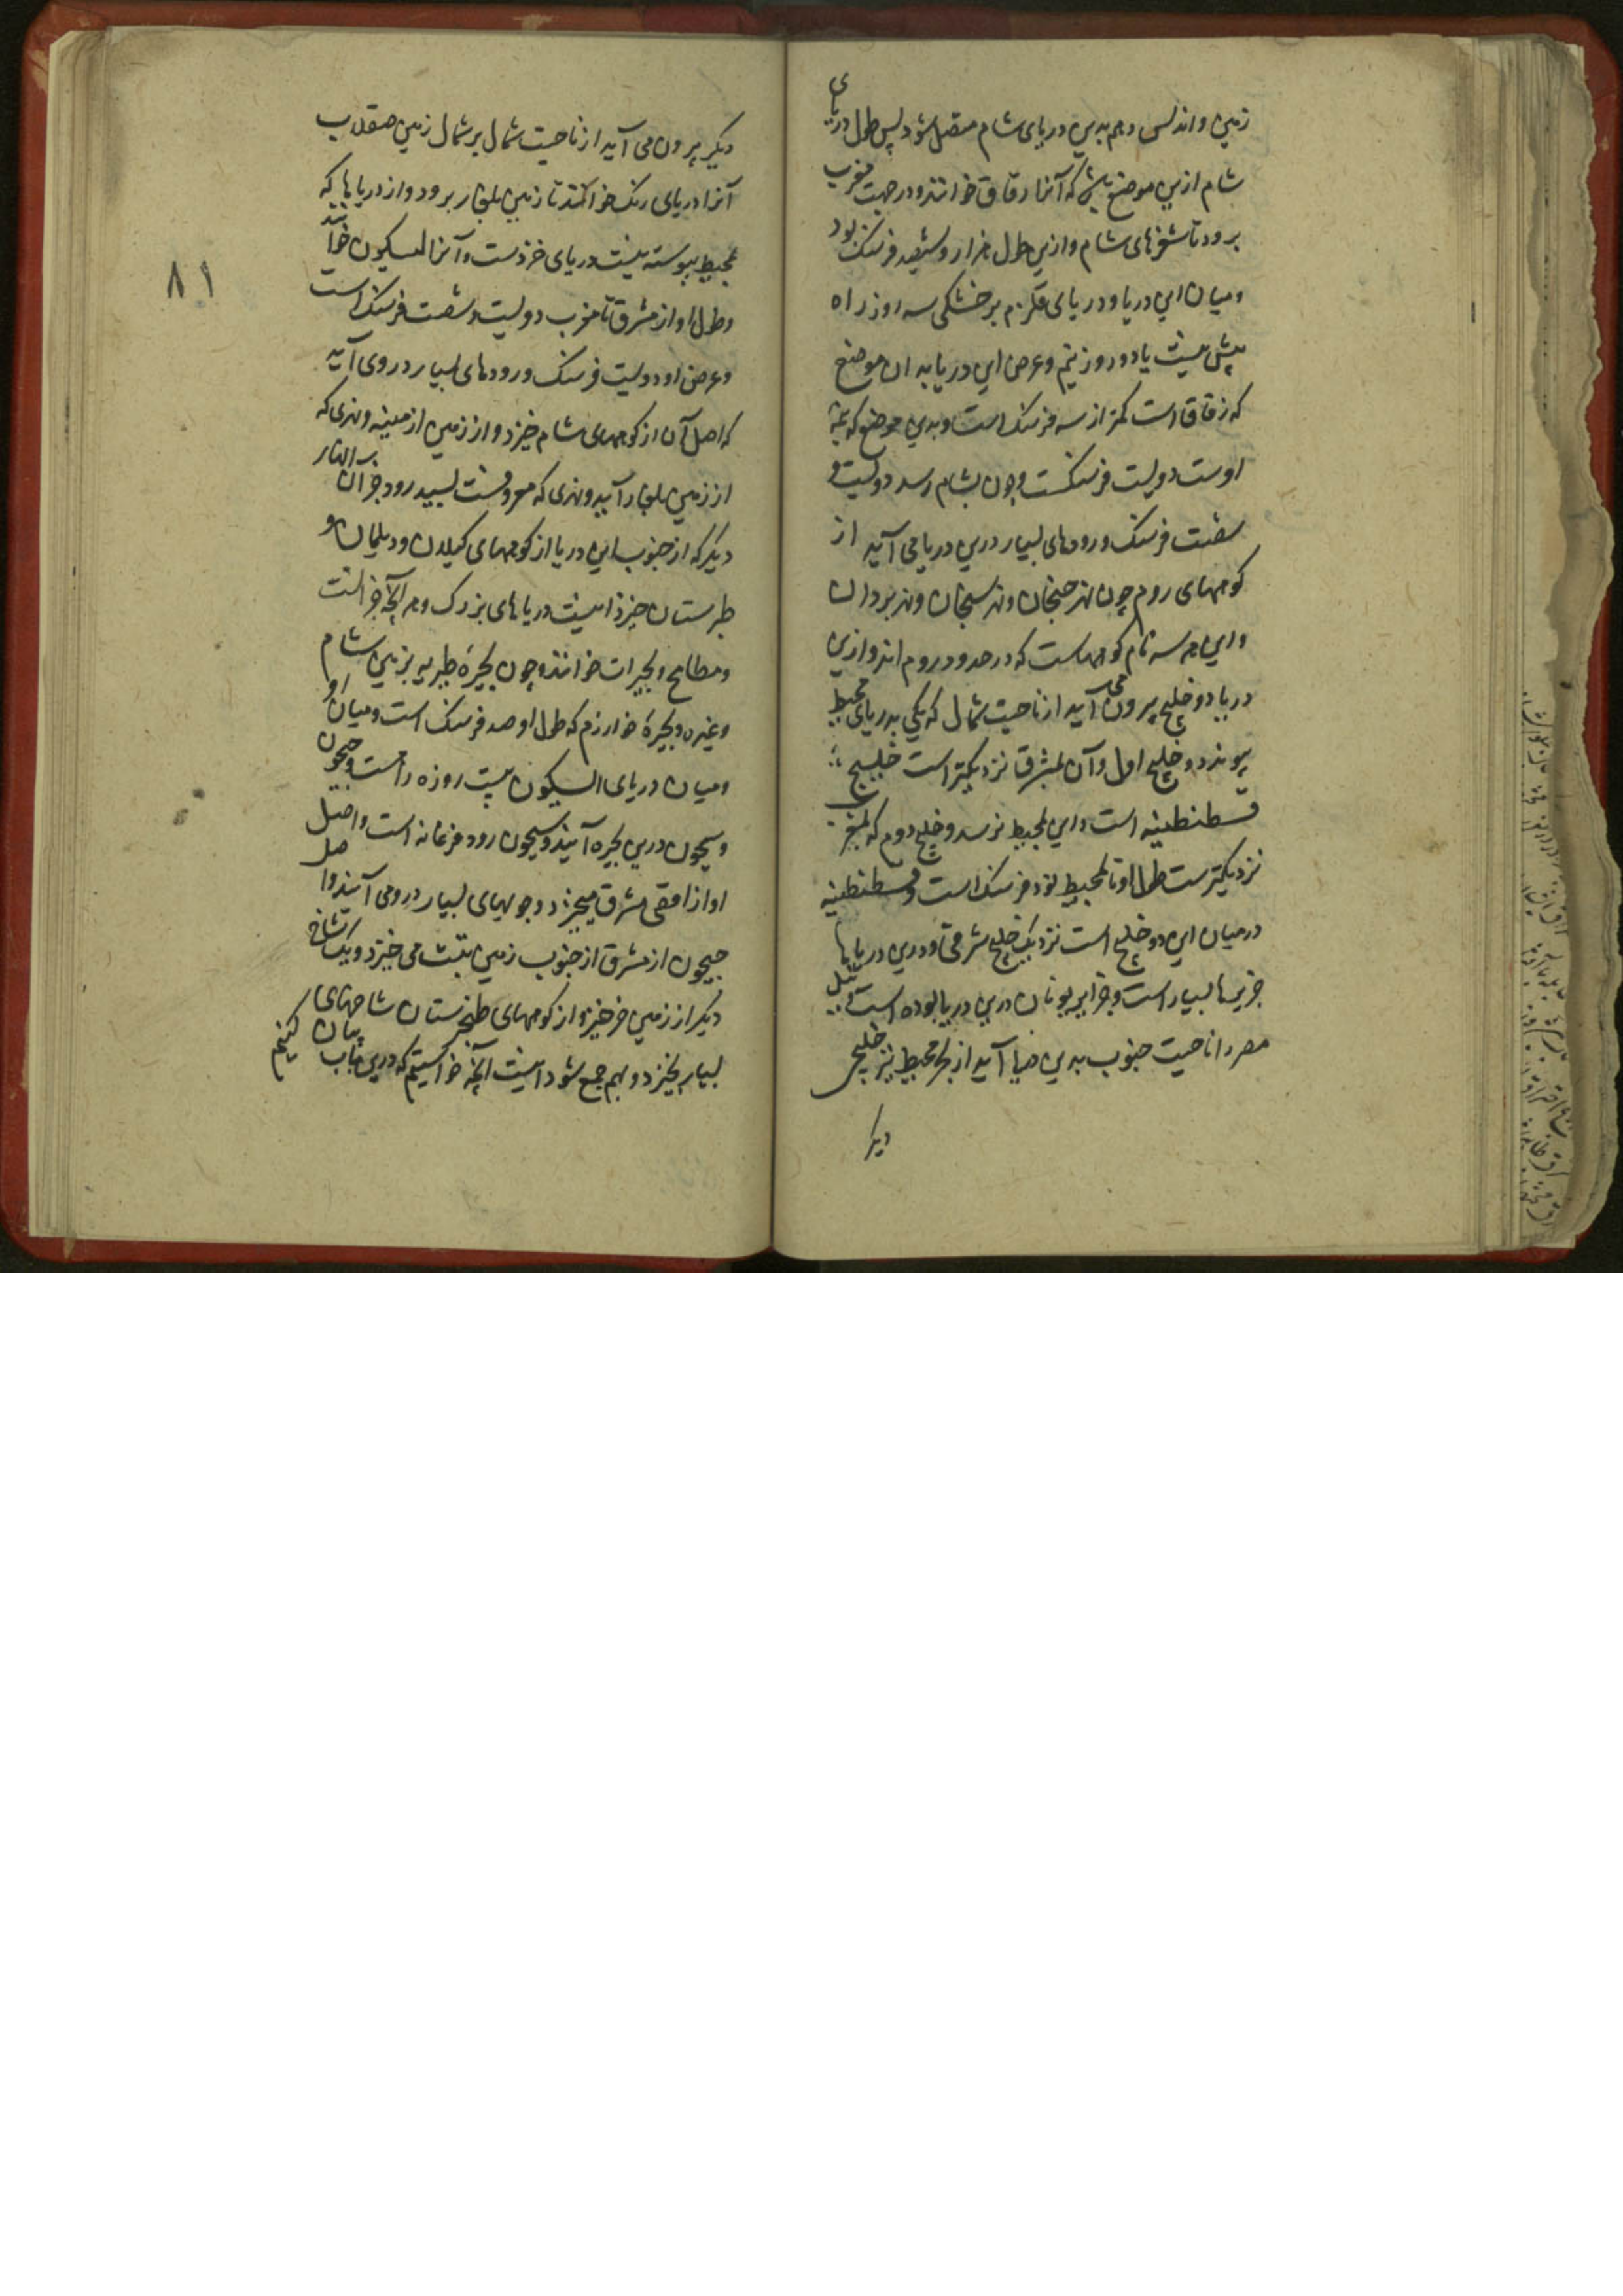 زمین و اندلس و هم بدین دریای شام متصل شود پس طول دریای
شام ازین موضع که آنرا زقاق خوانند و در جهت مغرب
برود تا ثغرهای شام و ازین طول هزار و ششصد فرسنک بود
و میان این دریا و دریای قلزم بر خشکی سه روز راه
بیش نیست یا دو روز نیم و عرض این دریا به ان موضع
که زقاق است کمتر از سه فرسنک است و بدین موضع که
اوست دویست فرسنکست و چون بشام رسد دویست و
شصت فرسنک و رودهای بسیار درین دریا می آید از
کوههای روم چون نهر جیحان و نهر سیحان و نهر بردان
و این هر سه نام کوههاست که در حدود روم اند و ازین
دریا دو خلیج بیرون می آید از ناحیت شمال که یکی بدریای محیط
پیوندد و خلیج اول و آن بمشرق نزدیکتر است خلیج
قسطنطینیه است و این بمحیط نرسد و خلیج دوم که بمغرب
نزدیکترست طول او تا بمحیط نود فرسنک است و قسطنطینیه
در میان این دو خلیج است نزدیک خلیج مشرقی و درین دریاها
جزیرها بسیار است و جزایر یونان درین دریا بوده است و نیل
مصر از ناحیت جنوب بدین دریا آید از بحر محیط نیز خلیجی
دیکر
۸۱
دیکر بیرون می آید از ناحیت شمال بر شمال زمین صقلاب
آنرا دریای رنک خوانند تا زمین بلغار برود و از دریاها که
بمحیط پیوسته نیست دریای خزرست و آنرا السیکون خوانند
و طول او از مشرق تا مغرب دویست و شصت فرسنک است
و عرض او دویست فرسنک و رودهای بسیار در وی آید
که اصل آن از کوههای شام خیزد و از زمین ارمنیه و نهری که
از زمین بلغار آید و نهری که معروفست بسپید رود و جز آن انهار
دیکر که از جنوب این دریا از کوههای کیلان و دیلمان و
طبرستان خیزد اینست دریاهای بزرک و هر آنچه جز اینست
و مطایح و بحیرات خوانند چون بحیرهٔ طبریه بزمین شام
و غیره و بحیرهٔ خوارزم که طول او صد فرسنک است و میان او
و میان دریای السیکون بیست روزه راه است و جیحون
و سیحون درین بحیره آیند و سیحون رود فرغانه است و اصل
او از اقصی مشرق میخیزد و جویهای بسیار درو می آیند و اصل
جیحون از مشرق از جنوب زمین تبت می خیزد و یک شاخ
دیکر از زمین خرخیز و از کوههای طخیرستان شاخهای
بسیار بخیزد و بهم جمع شود اینست آنچه خواستیم که درین باب بیان کنیم